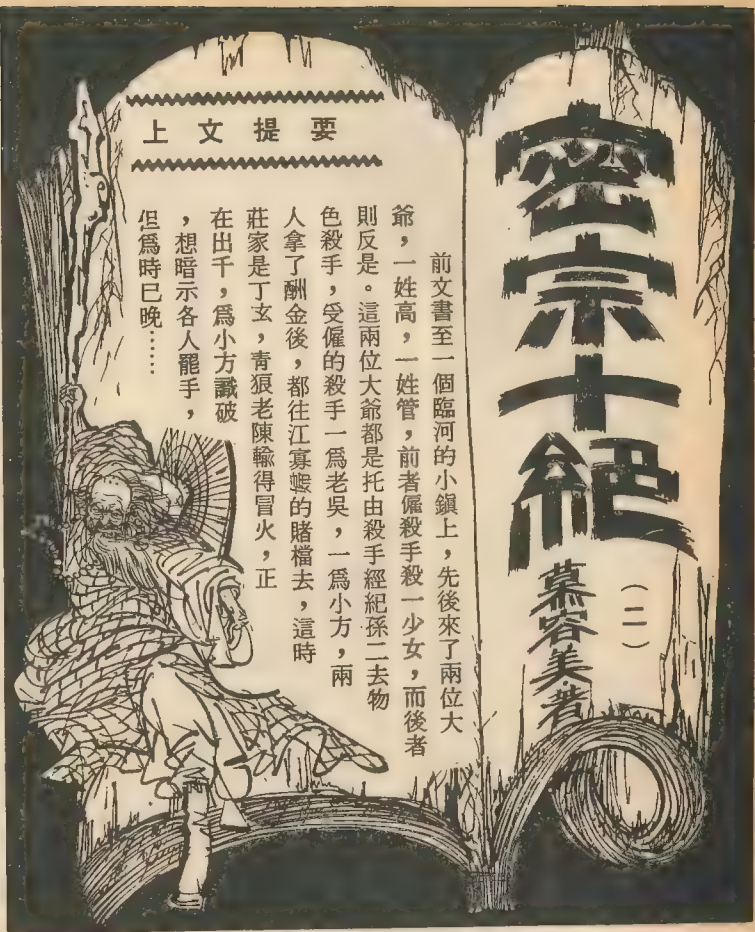 密宗十絕
（二）
慕容美著
上文提要
前文書至一個臨河的小鎮上，先後來了兩位大
爺，一姓高，一姓管，前者僱殺手殺一少女，而後者
則反是。這兩位大爺都是托由殺手經紀孫二去物
色殺手，受僱的殺手一爲老吳，一爲小方，兩
人拿了酬金後，都往江寡婦的賭檔去，這時
莊家是丁玄，青狼老陳輸得冒火，正
在出千，爲小方識破
，想暗示各人罷手，
但爲時已晚……